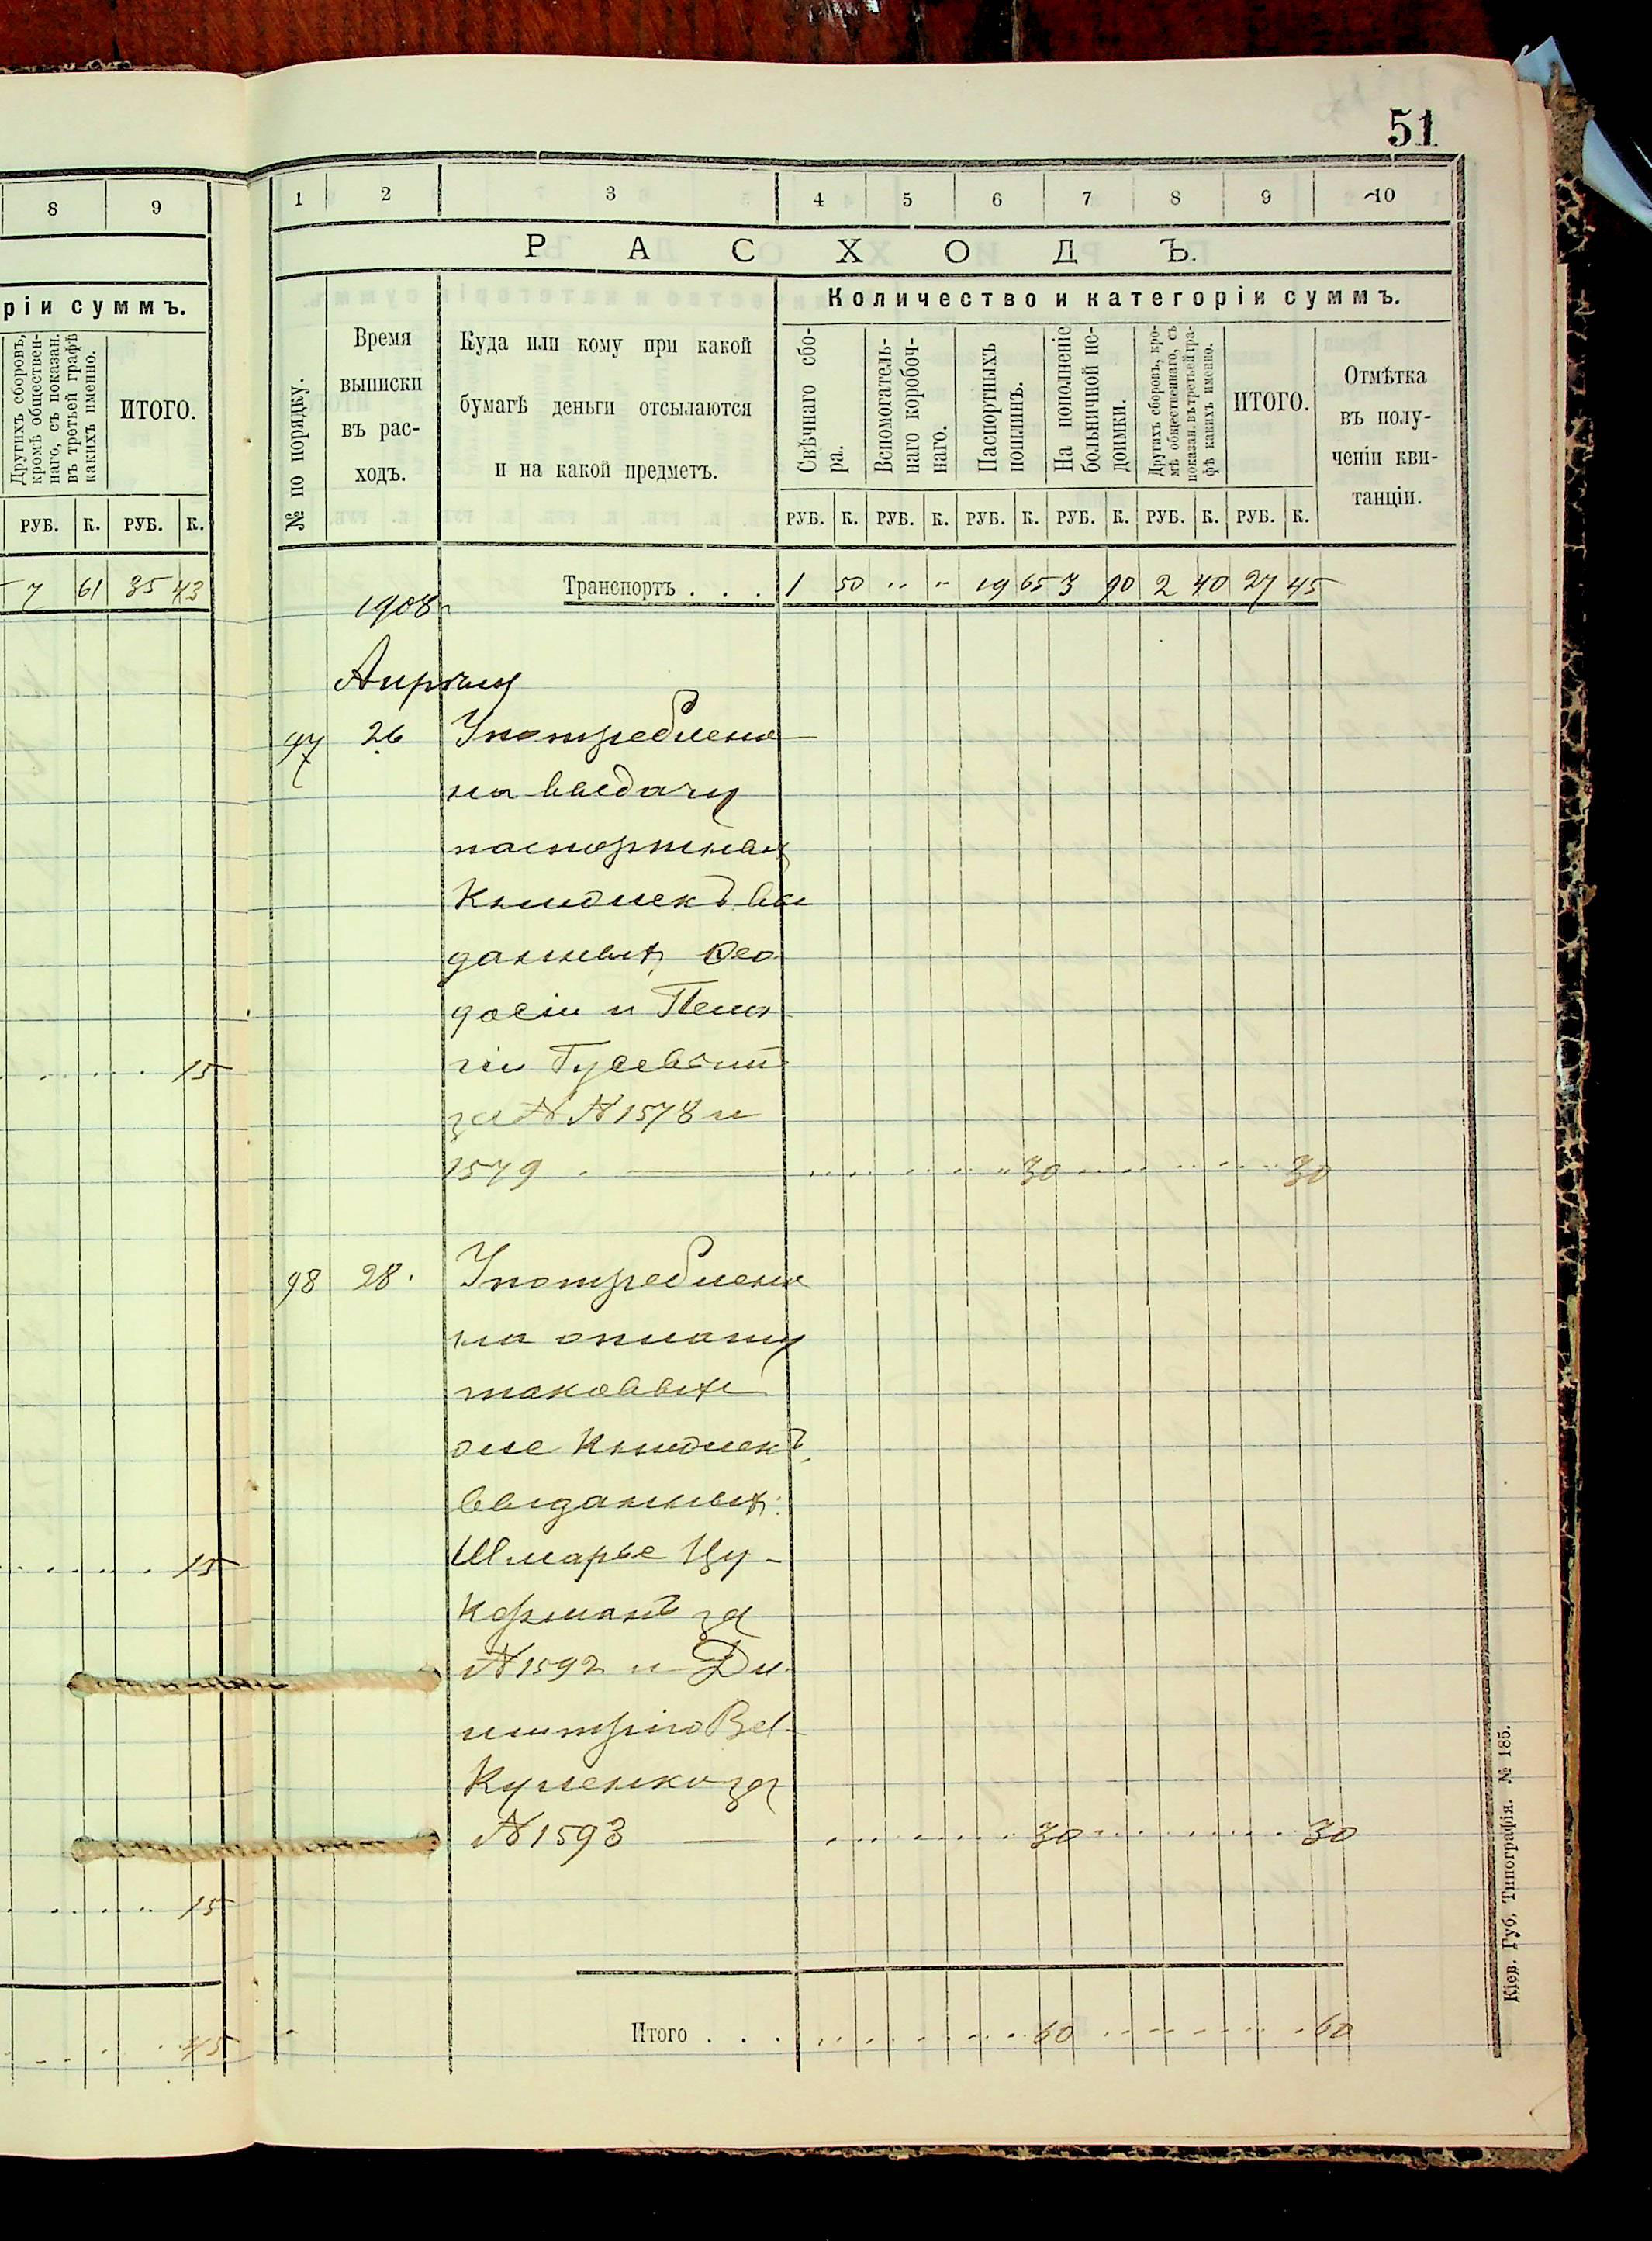 51
8 9
ріи суммъ.
Другихъ сборовъ,
кромѣ обществен-
наго, съ показан.
въ третьей графѣ
какихъ именно.
ИТОГО.
РУБ. К. РУБ. К.
7 61 35 43
15
15
15
45
1 2 3 4 5 6 7 8 9 10
РАСХОДЪ.
Количество и категоріи суммъ.
№ по порядку.
Время
выписки
въ рас-
ходъ.
Куда или кому при какой
бумагѣ деньги отсылаются
и на какой предметъ.
Свѣчнаго сбо-
ра.
Вспомогатель-
наго коробоч-
наго.
Паспортныхъ
пошлинъ.
На пополненіе
больничной не-
доимки.
Другихъ сборовъ, кро-
мѣ общественнаго, съ
показан. въ третьей гра-
фѣ какихъ именно.
ИТОГО.
Отмѣтка
въ полу-
ченіи кви-
танціи.
РУБ. К. РУБ. К. РУБ. К. РУБ. К. РУБ. К. РУБ. К.
Транспортъ . . . 1 50 " " 19 65 3 90 2 40 27 45
1908 г
Апрѣль
97 26 Употреблено
на выдачу
паспортныхъ
Книжекъ вы
данныхъ Ѳео
досіи и Пела
гіи Гусевымъ
за № № 1578 и
1579 . — 30 30
98 28. Употреблено
на оплату
таковыхъ
же Книжекъ,
выданныхъ:
Шмарье Цу-
керманъ за
№ 1592 и Ди
митрію
за
№ 1593 — 30 30
Итого . . . 60 60
Кіев. Губ. Типографія. № 185.